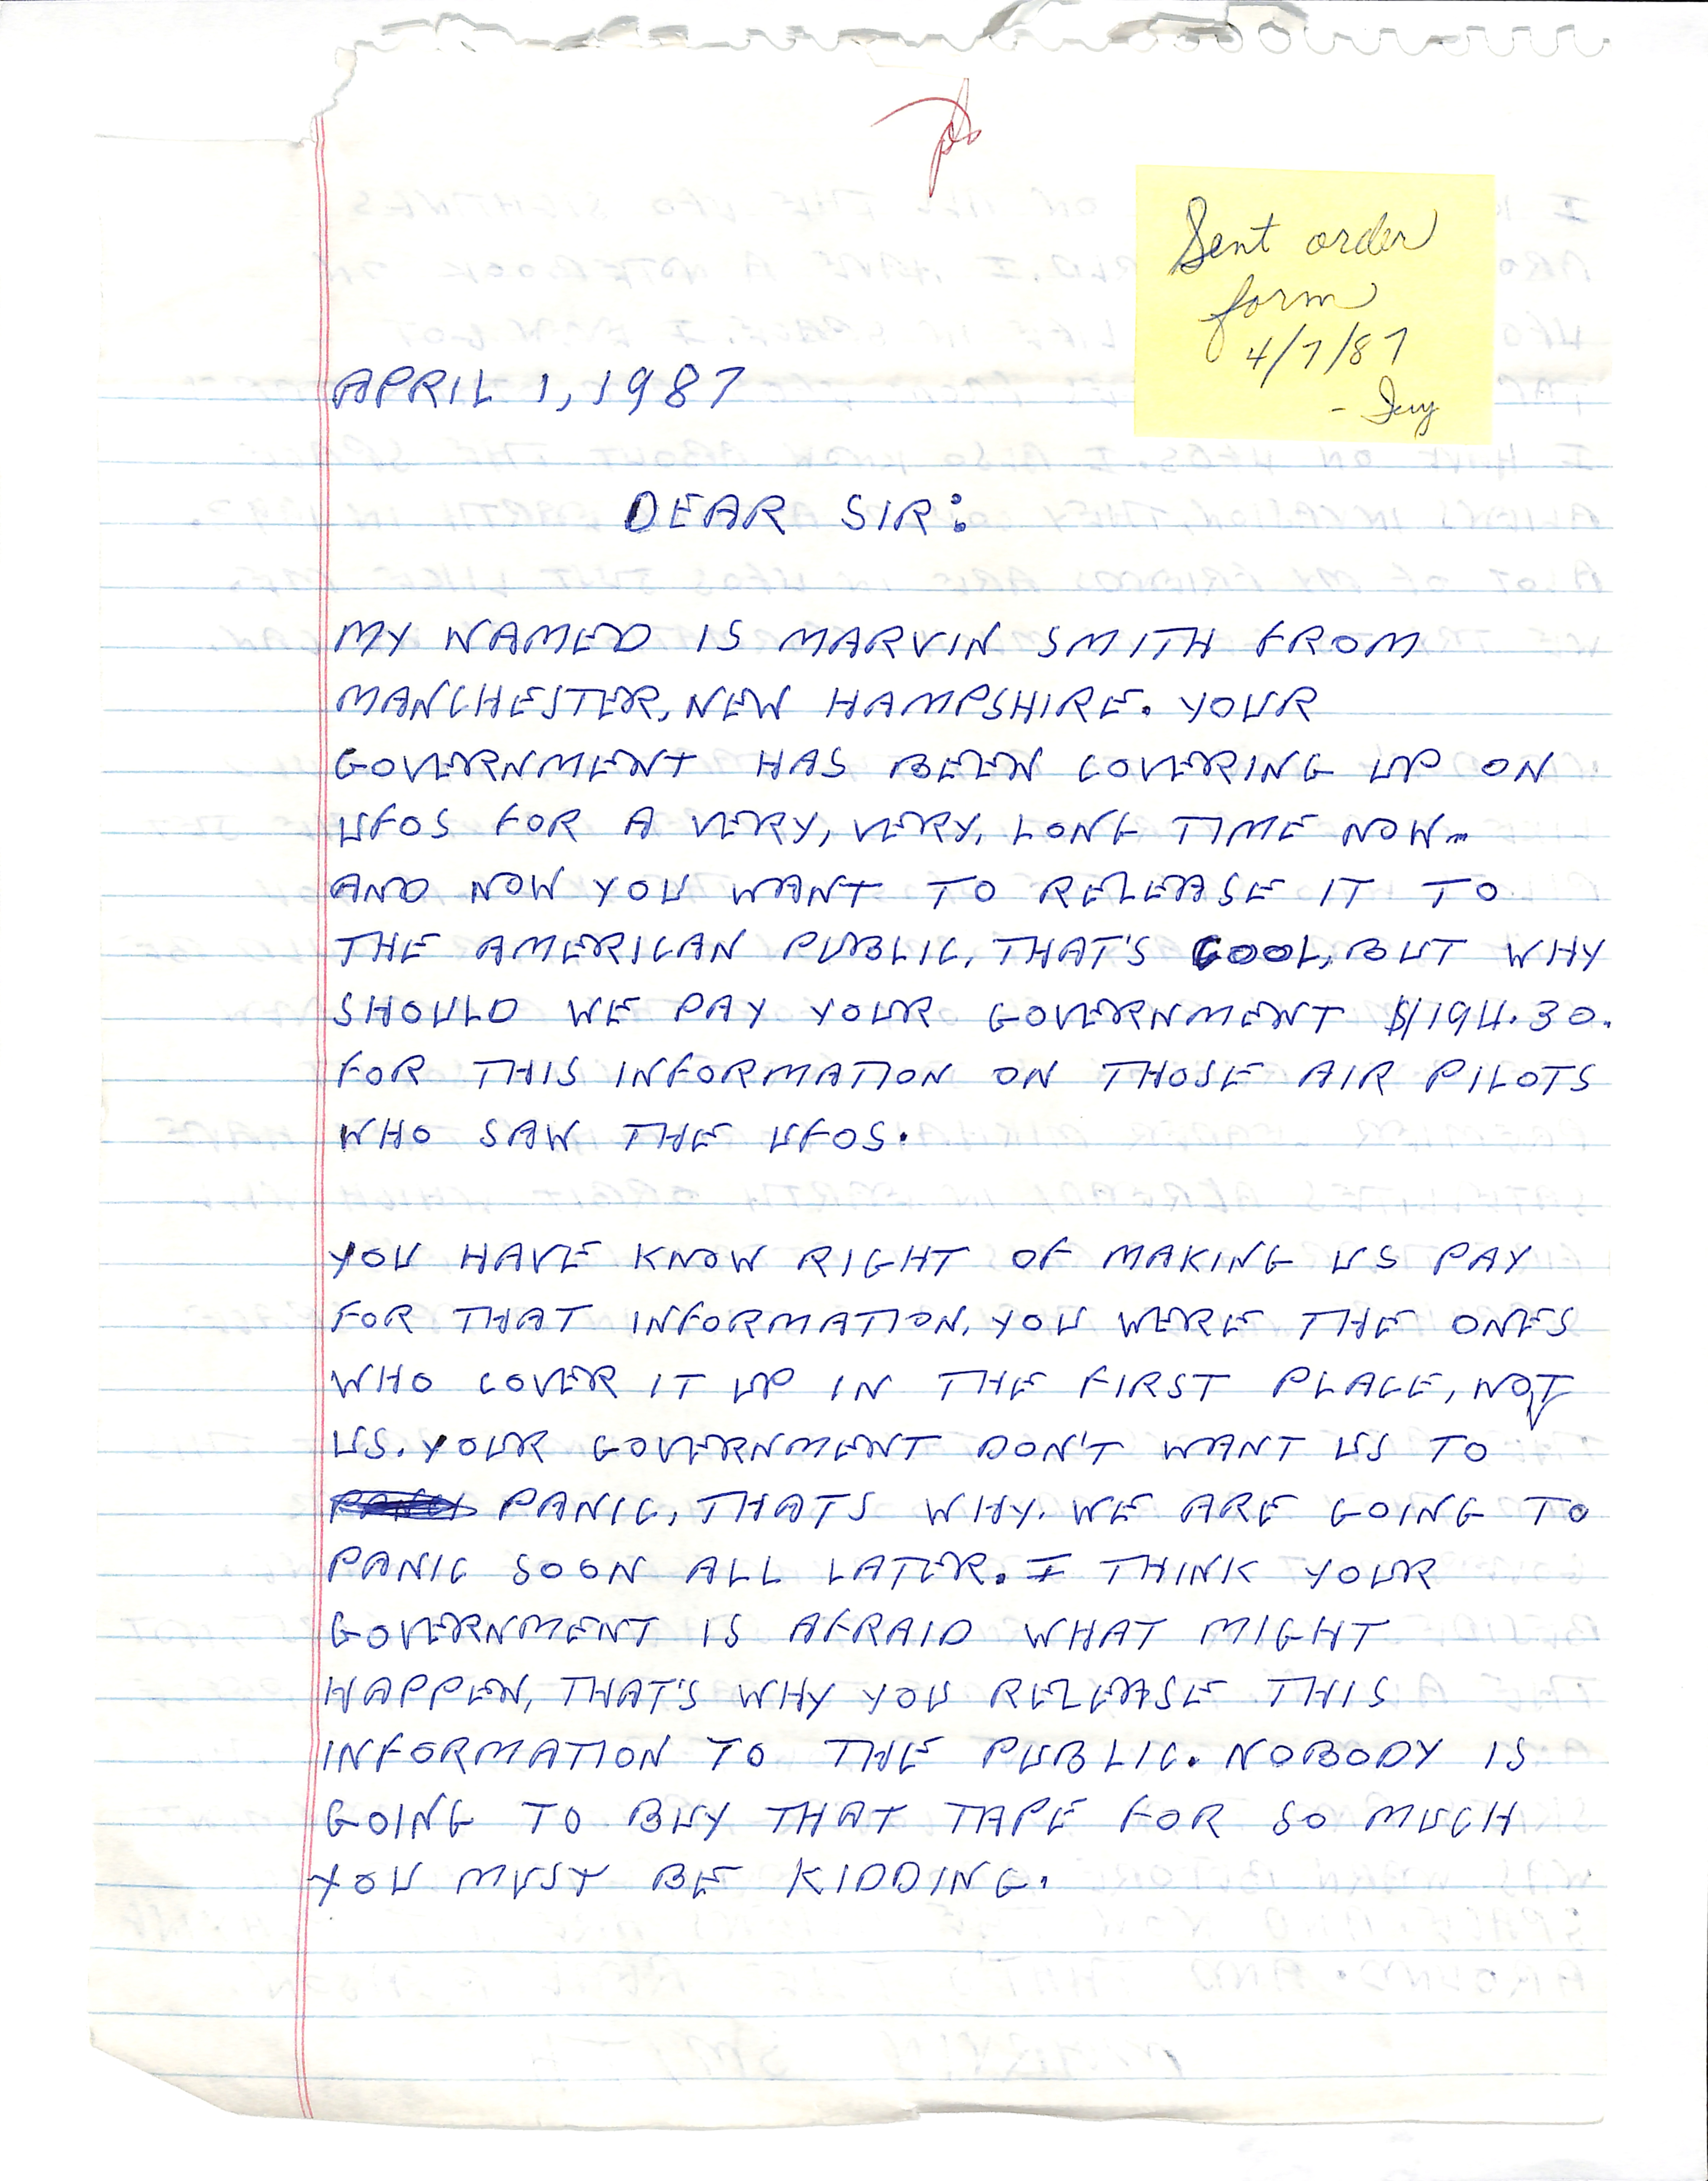 Sent order
form
4/7/87
APRIL 1, 1987
DEAR SIR:
MY NAMED IS MARVIN SMITH FROM
MANCHESTER, NEW HAMPSHIRE. YOUR
GOVERNMENT HAS BEEN COVERING UP ON
UFOS FOR A VERY, VERY, LONG TIME NOW...
AND NOW YOU WANT TO RELEASE IT TO
THE AMERICAN PUBLIC, THAT'S COOL, BUT WHY
SHOULD WE PAY YOUR GOVERNMENT $194.30.
FOR THIS INFORMATION ON THOSE AIR PILOTS
WHO SAW THE UFOS.
YOU HAVE KNOW RIGHT OF MAKING US PAY
FOR THAT INFORMATION, YOU WERE THE ONES
WHO COVER IT UP IN THE FIRST PLACE, NOT
US. YOUR GOVERNMENT DON'T WANT US TO
PANIC, THATS WHY. WE ARE GOING TO
PANIC SOON ALL LATER. I THINK YOUR
GOVERNMENT IS AFRAID WHAT MIGHT
HAPPEN, THAT'S WHY YOU RELEASE THIS
INFORMATION TO THE PUBLIC. NOBODY IS
GOING TO BUY THAT TAPE FOR SO MUCH
YOU MUST BE KIDDING.